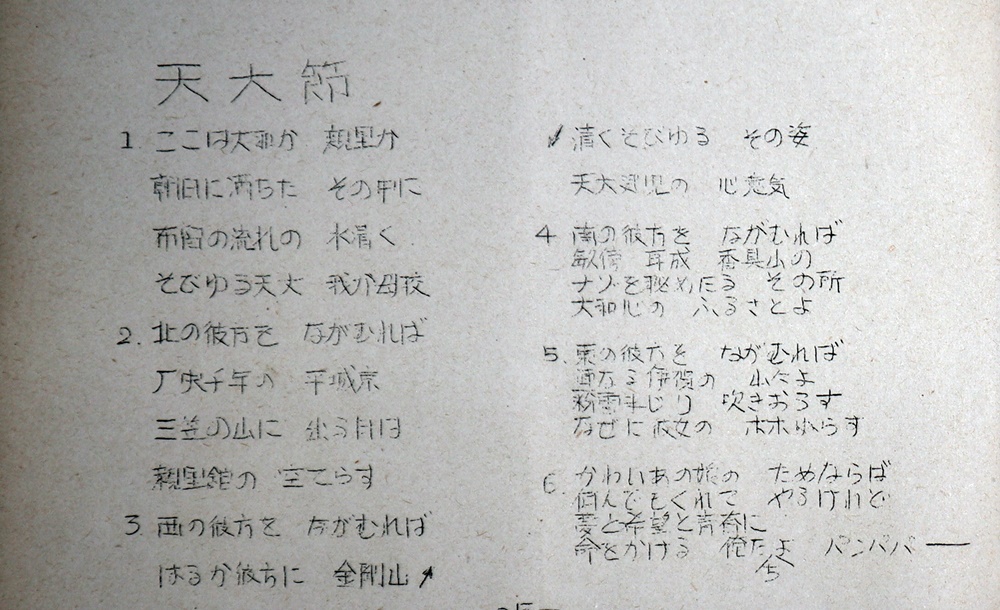 天大節
1. ここは大和か 親里か
朝日に満ちた その中に
布留の流れの 水清く
そびゆる天大 我が母校
2. 北の彼方を ながむれば
千年の 平城京
三笠の山に 出る月は
親里館の 空てらす
3. 西の彼方を ながむれば
はるか彼方に 金剛山
清くそびゆる その姿
天大健児の 心意気
4 南の彼方を ながむれば
畝傍 耳成 香具山の
ナゾを秘めたる その所
大和心の ふるさとよ
5. 東の彼方を ながむれば
連なる伊賀の 山々よ
粉雪まじり 吹きおろす
なぜに彼女の ホホぬらす
6. かわいあの娘の ためならば
死んでもくれて やるけれど
夢と希望と青春に
命をかける 俺たちよ パンパパー